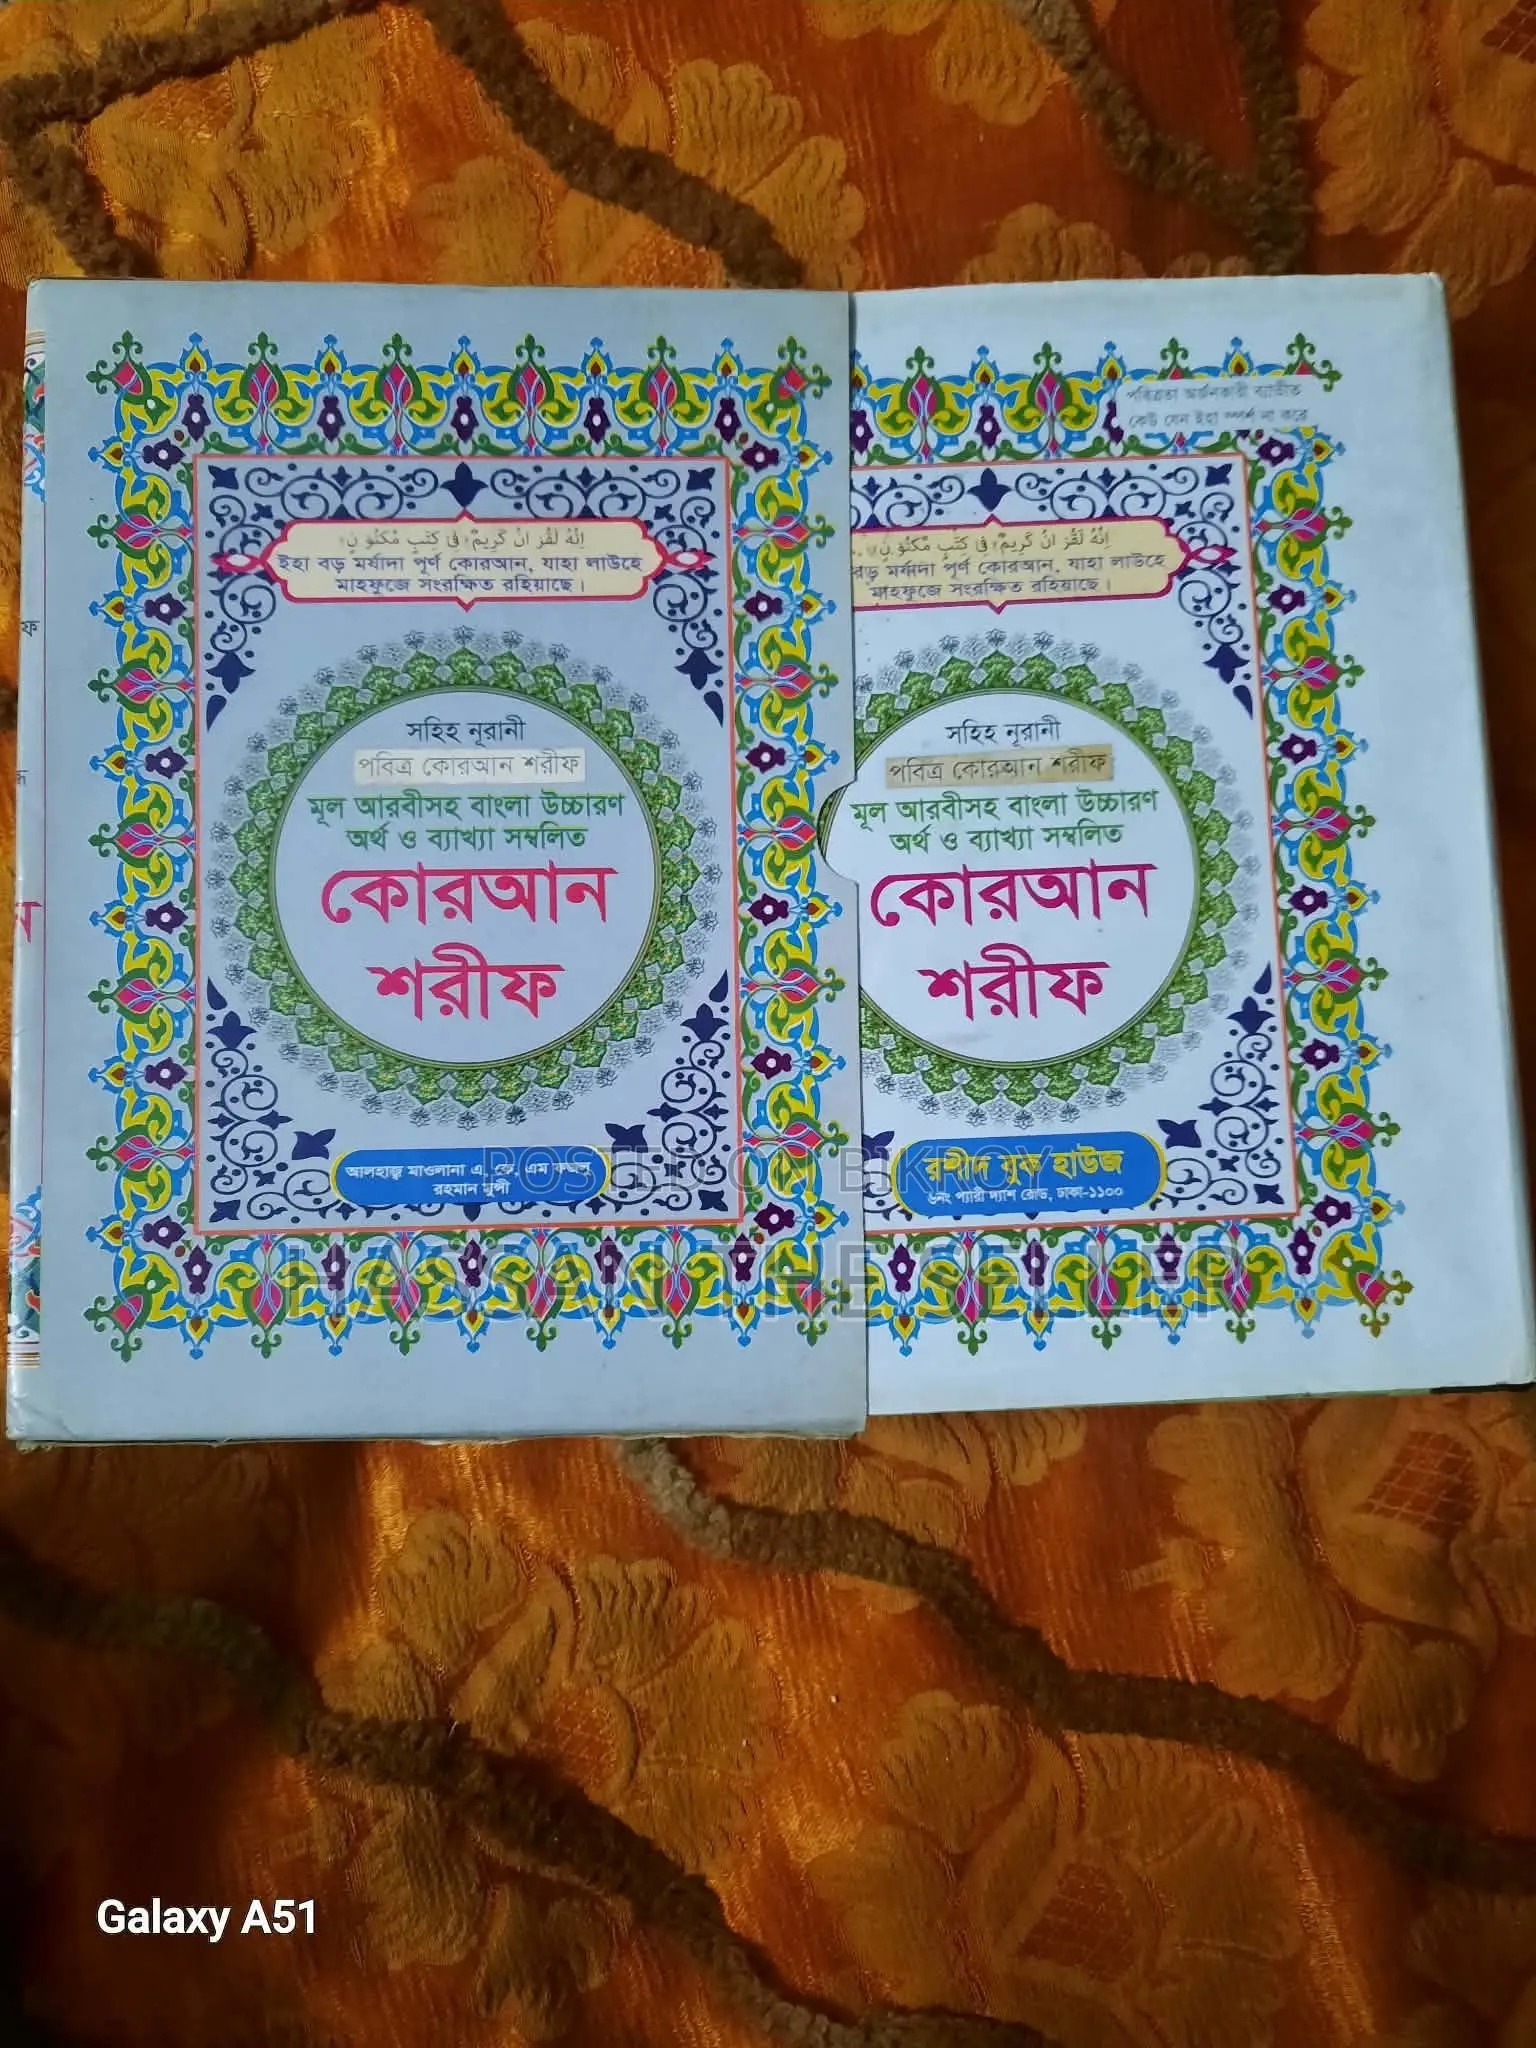 اِنَّهٗ لَقُرْاٰنٌ كَرِيْمٌ فِىْ كِتٰبٍ مَّكْنُوْنٍ
ইহা বড় মর্যাদা পূর্ণ কোরআন, যাহা লাউহে
মাহফুজে সংরক্ষিত রহিয়াছে।
সহিহ নূরানী
পবিত্র কোরআন শরীফ
মূল আরবীসহ বাংলা উচ্চারণ
অর্থ ও ব্যাখ্যা সম্বলিত
কোরআন
শরীফ
আলহাজ্ব মাওলানা এ, কে, এম ফজলু
রহমান মুন্সী
পবিত্রতা অর্জনকারী ব্যাতীত
কেউ যেন ইহা স্পর্শ না করে
اِنَّهٗ لَقُرْاٰنٌ كَرِيْمٌ فِىْ كِتٰبٍ مَّكْنُوْنٍ
বড় মর্যাদা পূর্ণ কোরআন, যাহা লাউহে
মাহফুজে সংরক্ষিত রহিয়াছে।
সহিহ নূরানী
পবিত্র কোরআন শরীফ
মূল আরবীসহ বাংলা উচ্চারণ
অর্থ ও ব্যাখ্যা সম্বলিত
কোরআন
শরীফ
রশীদ বুক হাউজ
৬নং প্যারী দাস রোড, ঢাকা-১১০০
POSTED ON BIKROY
HASSAN THE SELLER
Galaxy A51